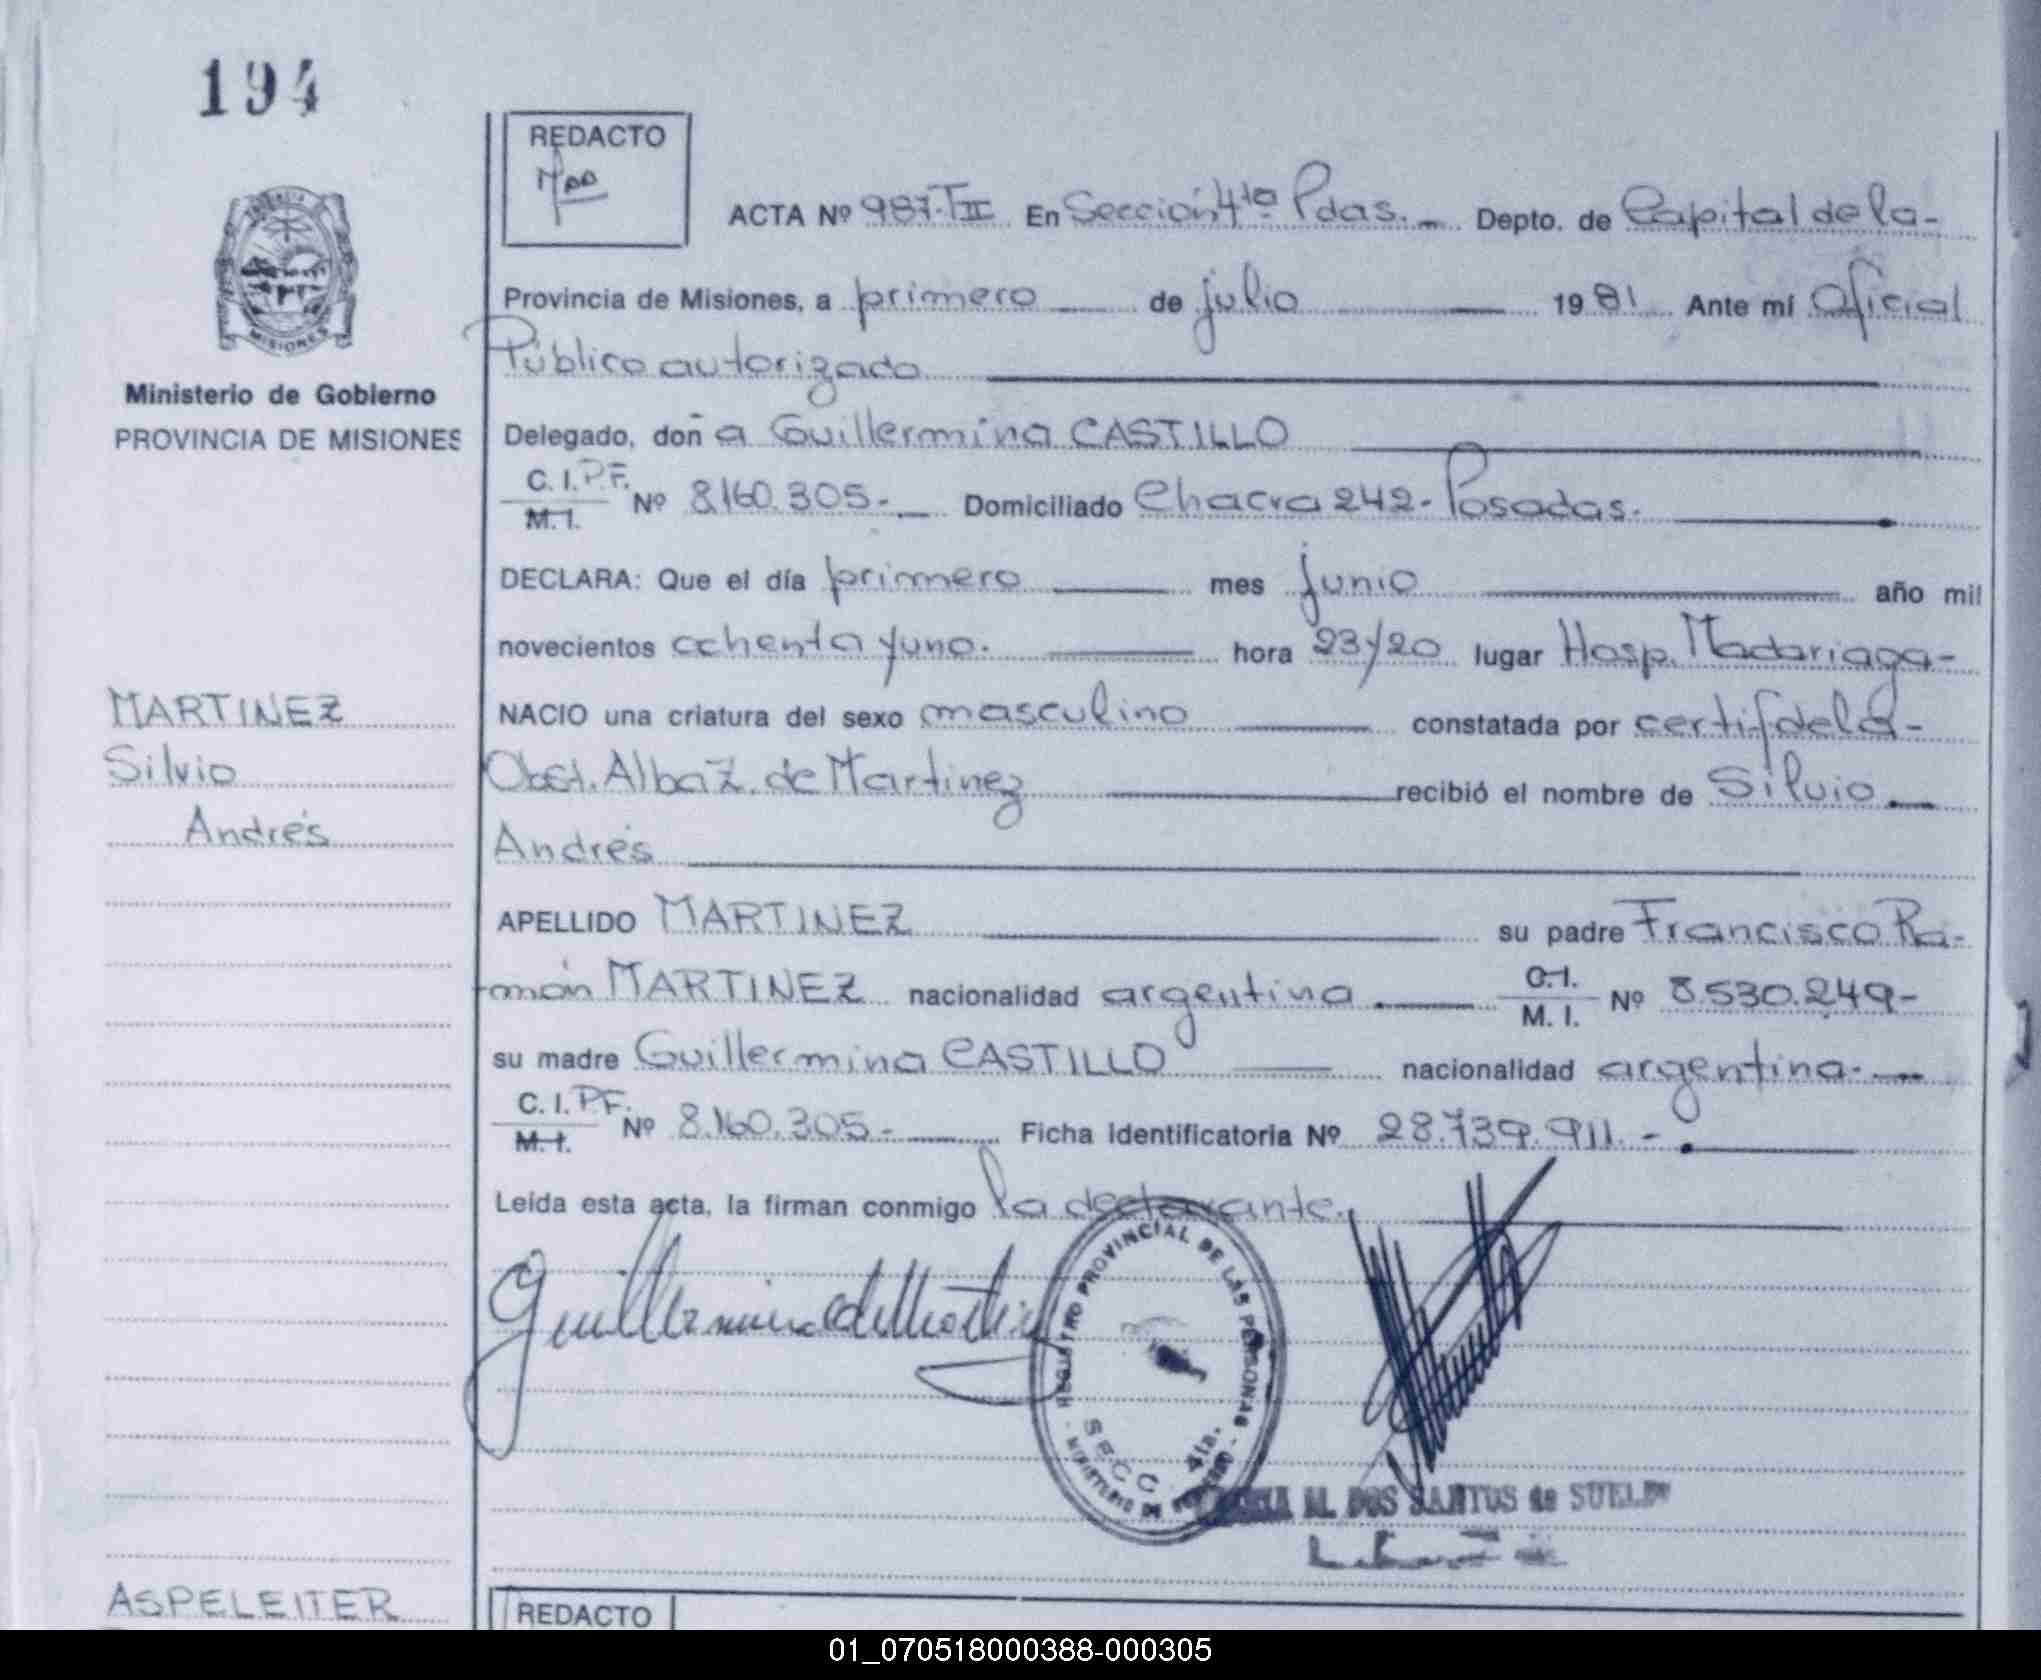 194
REDACTO
ACTA Nº 987-TII En Sección 4ta Pdas. Depto. de Capital de la-
PROVINCIA
MISIONES
Provincia de Misiones, a primero de julio 1981 Ante mí Oficial
Público autorizado
Ministerio de Gobierno
PROVINCIA DE MISIONES
Delegado, doña Guillermina CASTILLO
C. I. P.F. M. I. Nº 8.160.305- Domiciliado Chacra 242- Posadas.
DECLARA: Que el día primero mes junio año mil
novecientos ochenta y uno. hora 23/20 lugar Hosp. Madariaga-
MARTINEZ
Silvio
Andrés
NACIO una criatura del sexo masculino constatada por certif de la-
Obst. Alba Z. de Martinez recibió el nombre de Silvio
Andrés
APELLIDO MARTINEZ su padre Francisco Ra-
món MARTINEZ nacionalidad argentina C. I. M. I. Nº 8.530.249-
su madre Guillermina CASTILLO nacionalidad argentina.
C. I. P.F. M. I. Nº 8.160.305- Ficha Identificatoria Nº 28.739.911.-
Leída esta acta, la firman conmigo la declarante.
REGISTRO PROVINCIAL DE LAS PERSONAS - MINISTERIO DE GOBIERNO -
SECC. 4ta.
M. DOS SANTOS de SUELDO
ASPELEITER
REDACTO
01_070518000388-000305